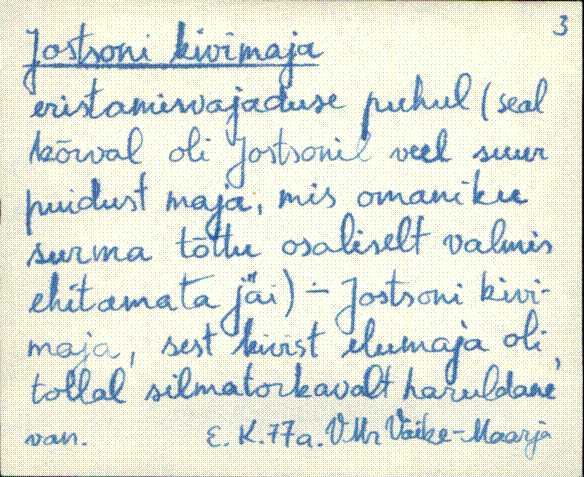 3
Jostsoni kivimaja
eristamisvajaduse puhul (seal
kõrval oli Jostsonil veel suur
puidust maja, mis omaniku
surma tõttu osaliselt valmis
ehitamata jäi) — Jostsoni kivi-
maja, sest kivist elumaja oli
tollal silmatorkavalt haruldane,
van. E. K. 77 a. VMr Väike-Maarja